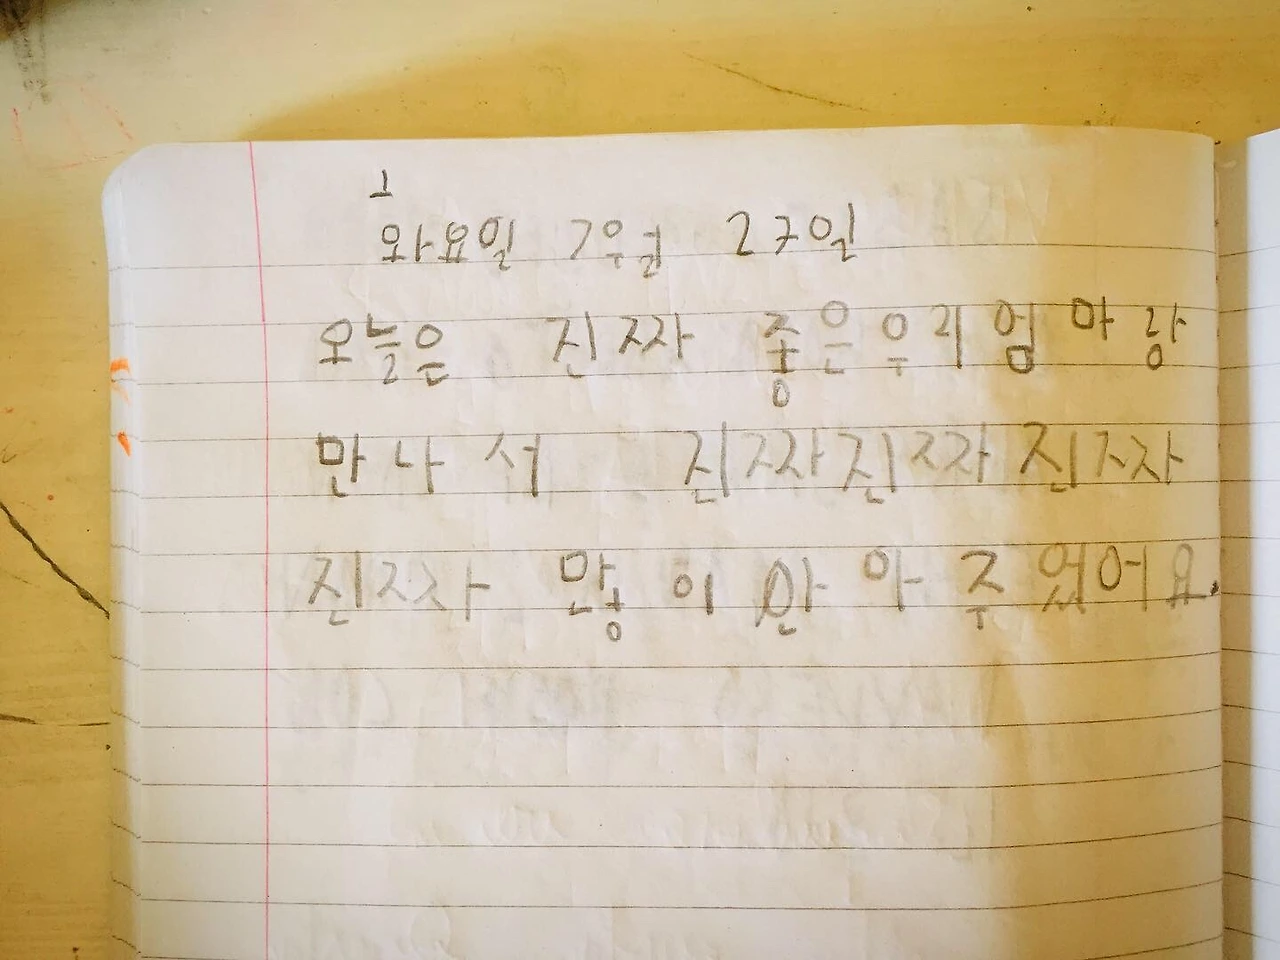 화요일 7월 27일
오늘은 진짜 좋은우리엄마랑
만나서 진짜진짜진짜
진짜 망이안아주었어요.